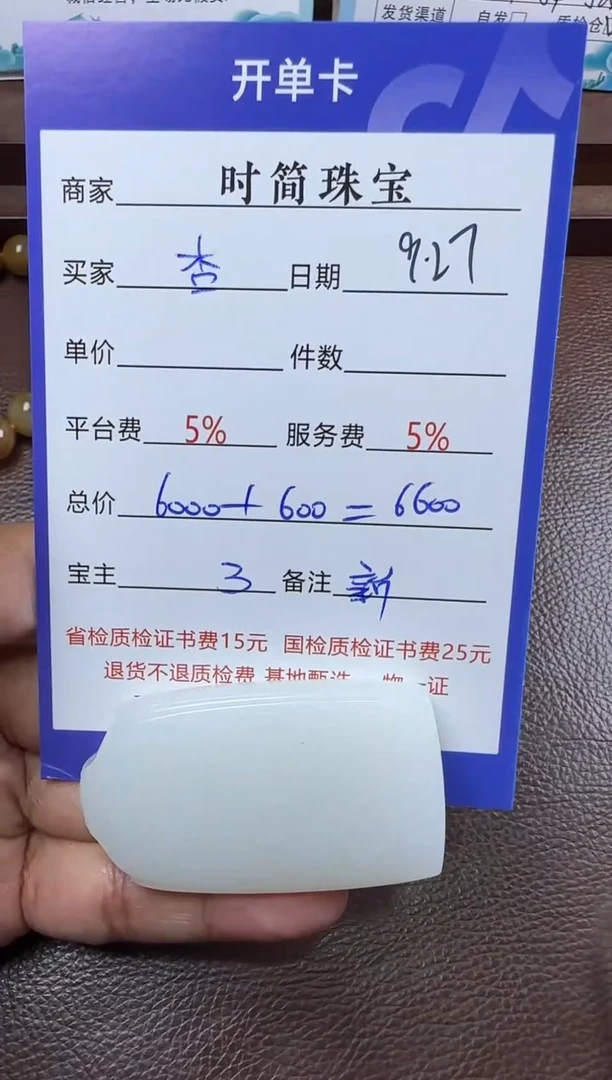 发货渠道 自发□ 质检仓
开单卡
商家 时简珠宝
买家 杏 日期 9.27
单价 件数
平台费 5% 服务费 5%
总价 6000+600=6600
宝主 3 备注 新
省检质检证书费15元 国检质检证书费25元
退货不退质检费 基地甄选 一物一证